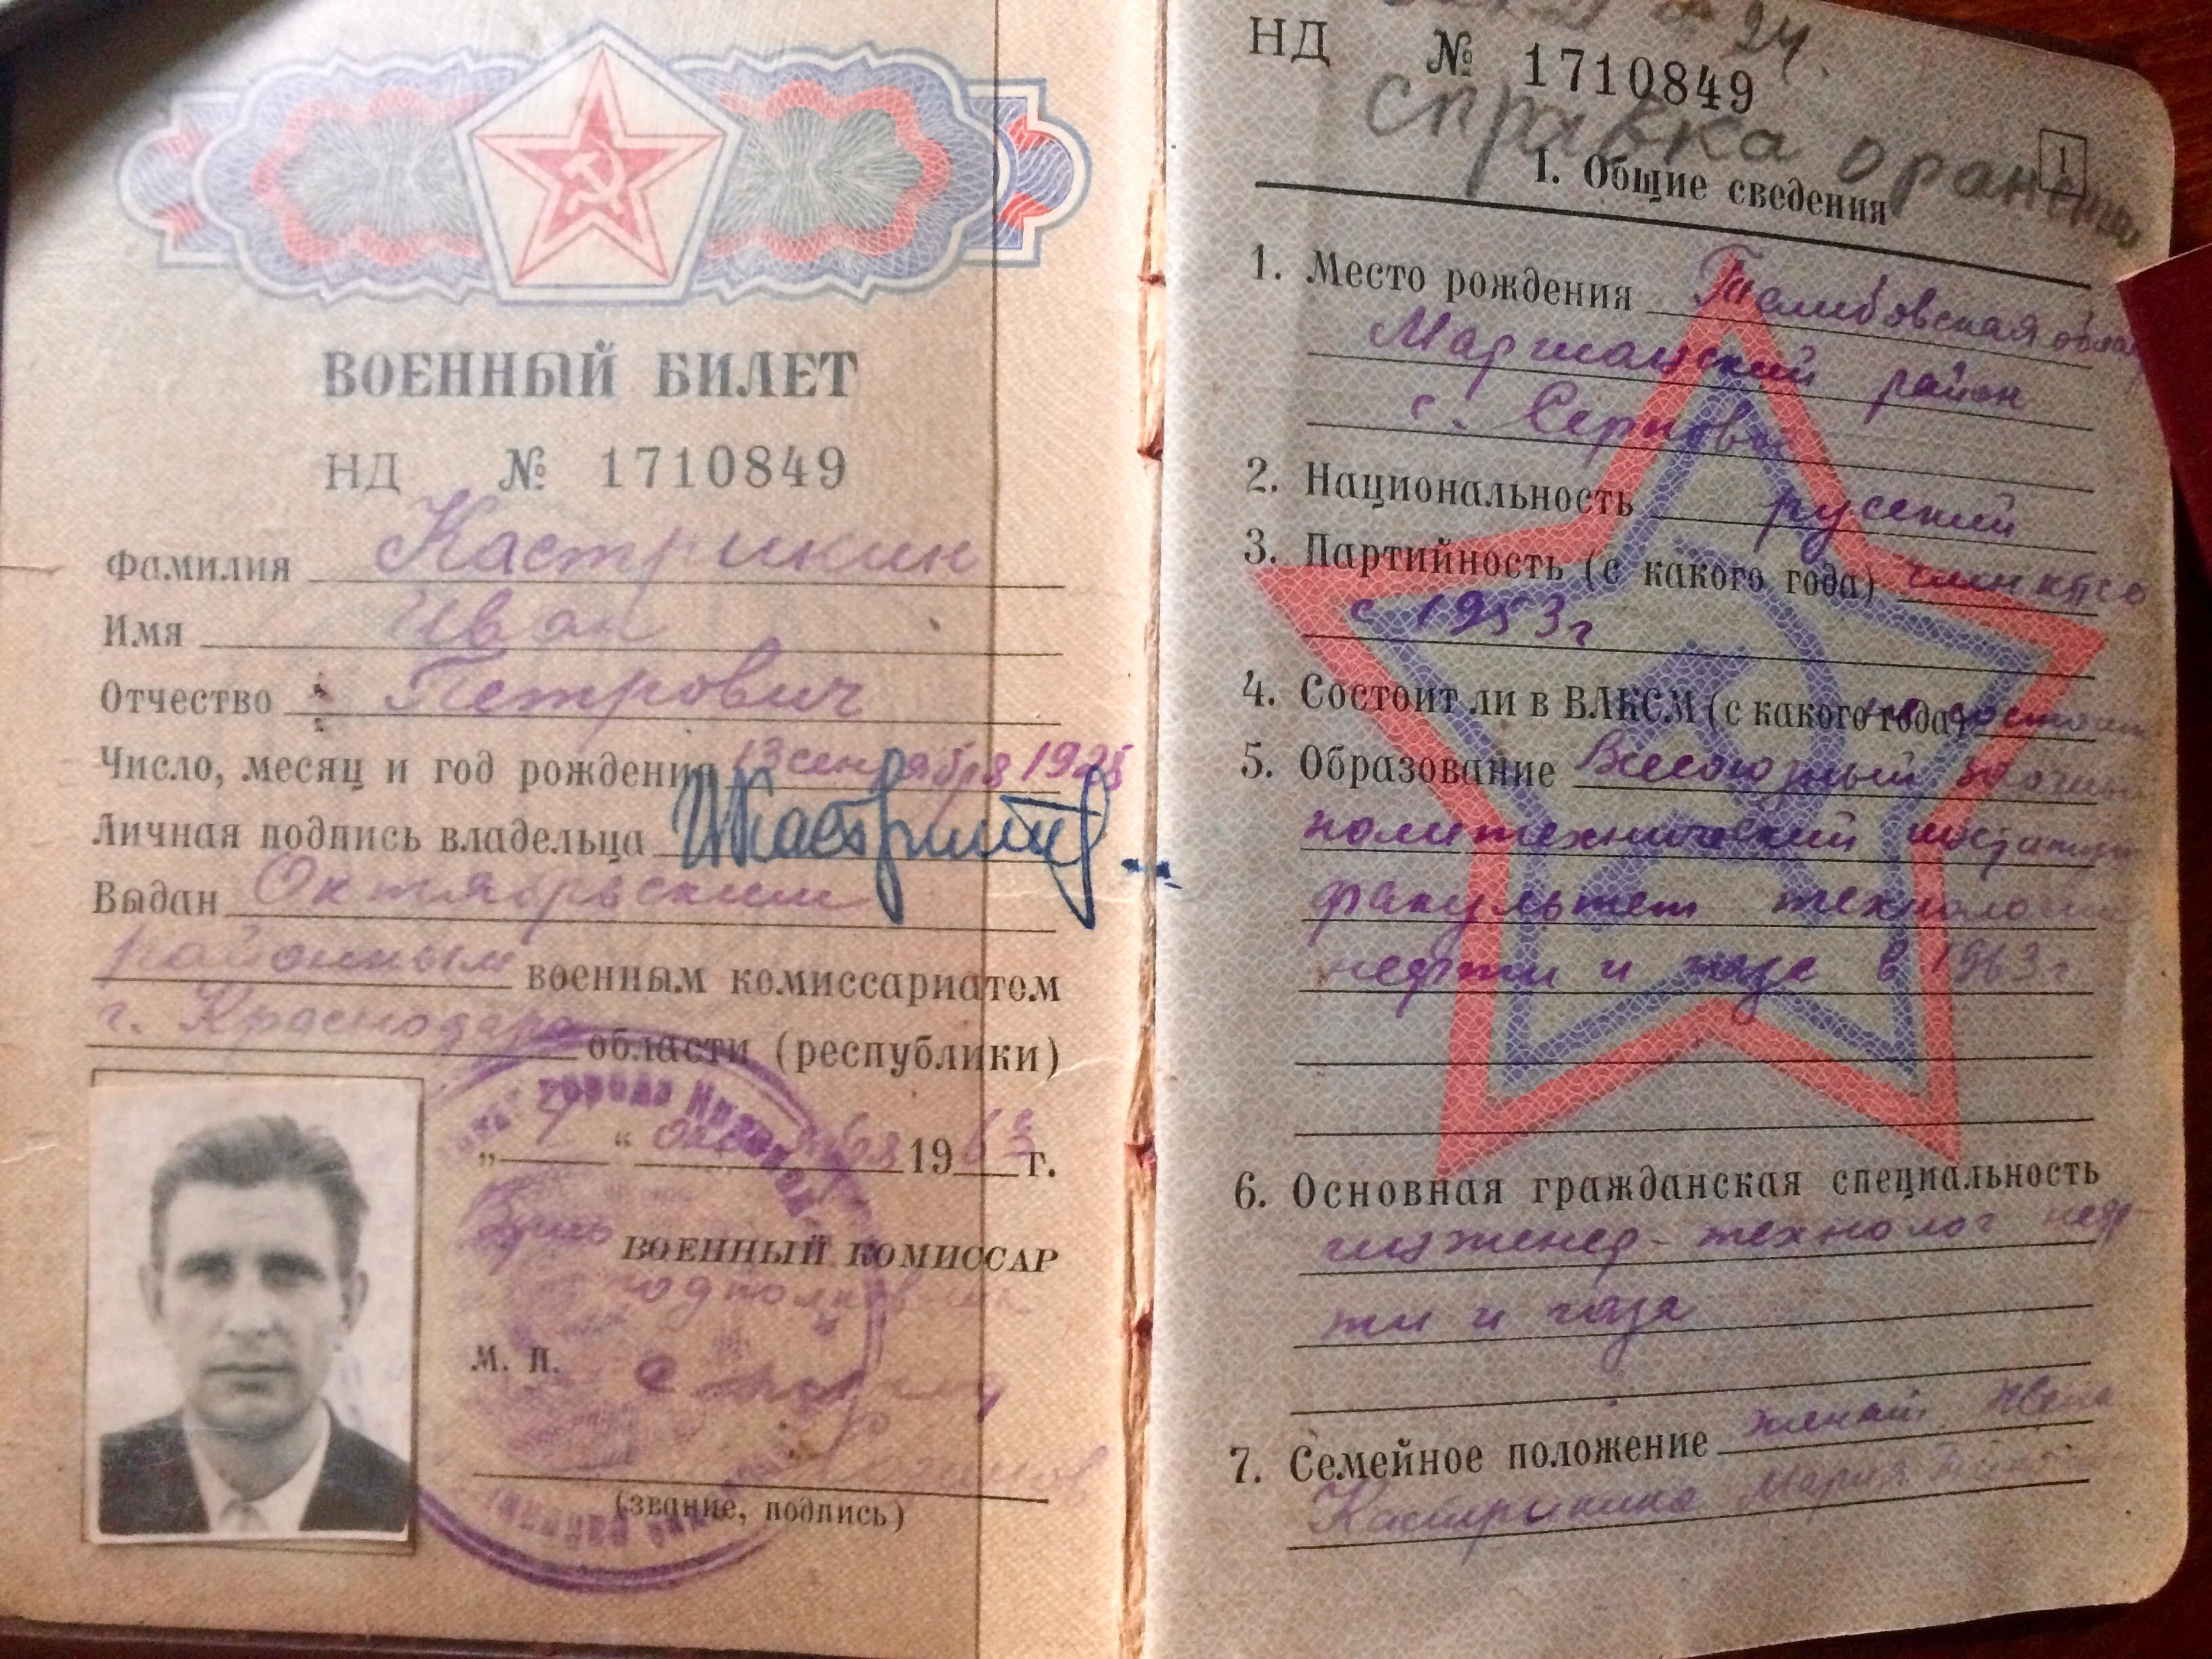 ВОЕННЫЙ БИЛЕТ
НД № 1710849
Фамилия Кастрикин
Имя Иван
Отчество Петрович
Число, месяц и год рождения 13 сентября 1925
Личная подпись владельца
Выдан Октябрьским
районным военным комиссариатом
г. Краснодара области (республики)
„ 7 “ октября 1963 г.
ВОЕННЫЙ КОМИССАР
подполковник
М. П.
(звание, подпись)
24.
НД № 1710849
справка о ранении
1
1. Общие сведения
1. Место рождения Тамбовская обл
Моршанский район
с. Серповое
2. Национальность русский
3. Партийность (с какого года) член КПСС
с 1953 г
4. Состоит ли в ВЛКСМ (с какого года) не состоит
5. Образование Всесоюзный заочный
политехнический институт
факультет технологии
нефти и газа в 1963 г
6. Основная гражданская специальность
инженер-технолог неф-
ти и газа
7. Семейное положение женат, жена
Кастрикина Мария